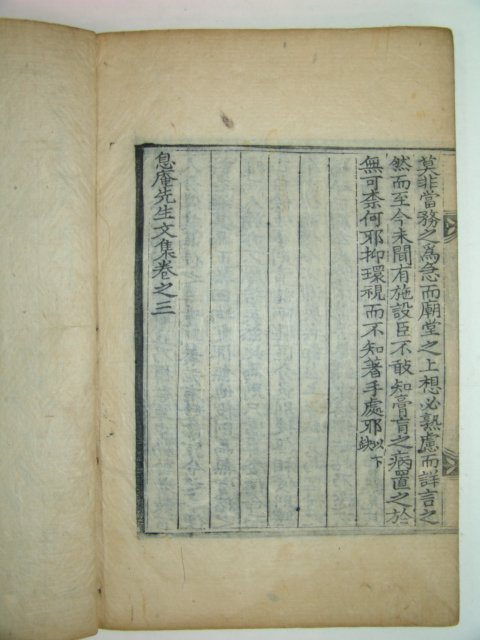 莫非當務之爲急而廟堂之上想必熟慮而詳言之
然而至今未聞有施設臣不敢知膏肓之病置之於
無可柰何耶抑環視而不知著手處耶以下缺
息庵先生文集卷之三